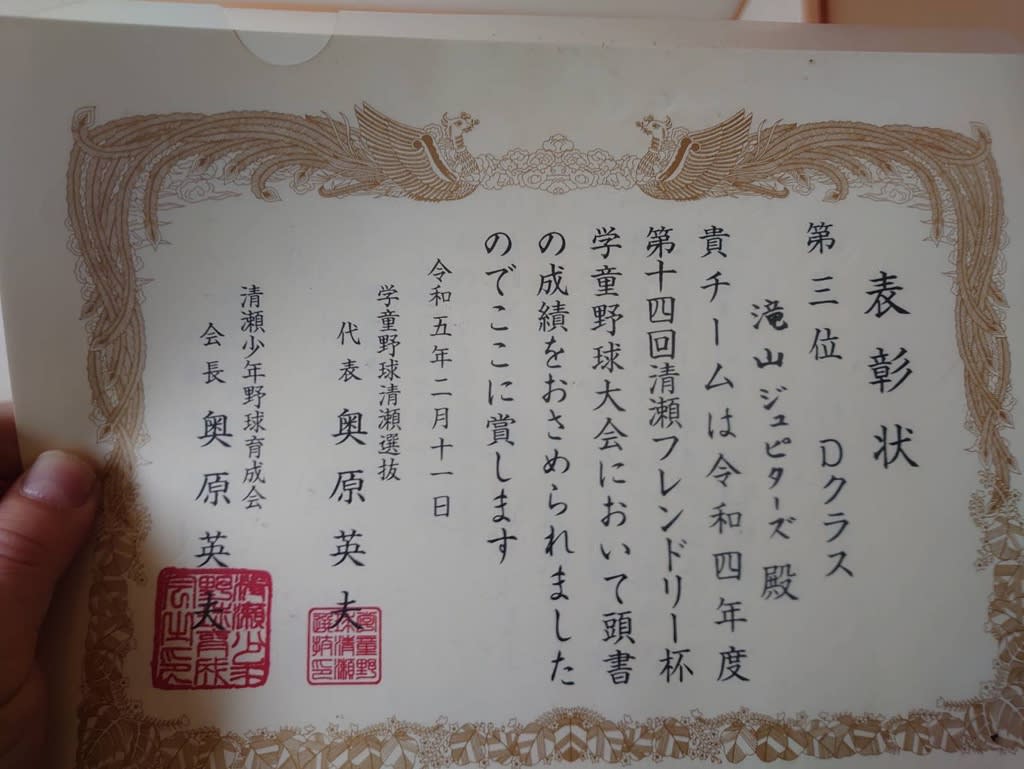 表彰状
第三位 Dクラス
滝山ジュピターズ 殿
貴チームは令和四年度
第十四回清瀬フレンドリー杯
学童野球大会において頭書
の成績をおさめられました
のでここに賞します
令和五年二月十一日
学童野球清瀬選抜
代表 奥原英夫
清瀬少年野球育成会
会長 奥原英夫